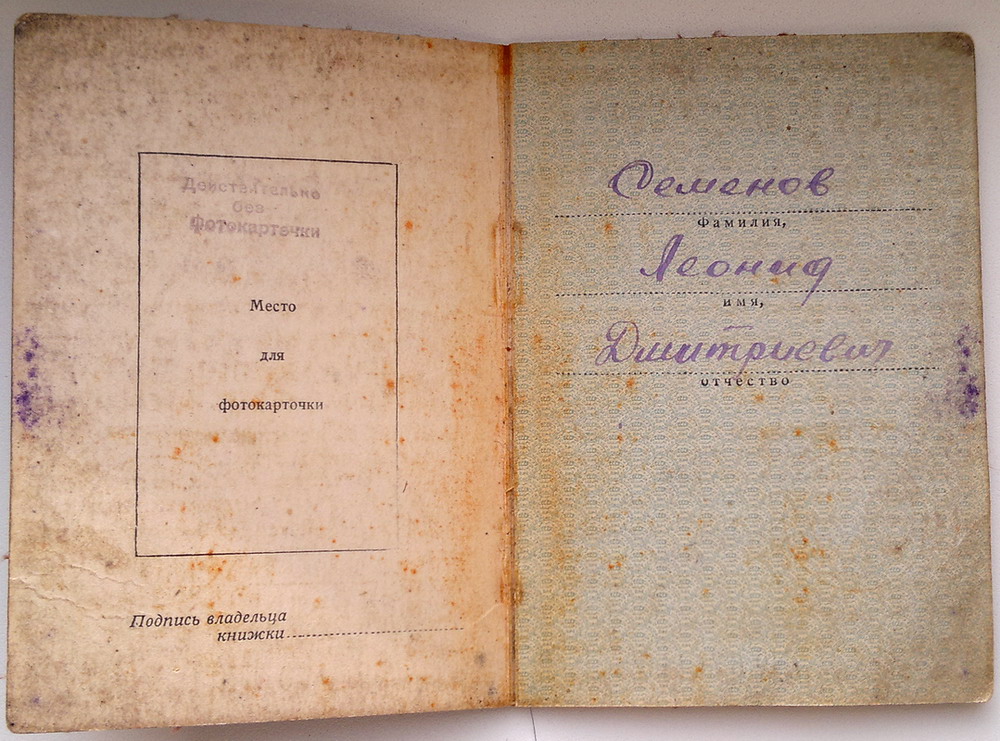 Действительно
без
фотокарточки
Место
для
фотокарточки
Подпись владельца
книжки
Семенов
фамилия,
Леонид
имя,
Дмитриевич
отчество